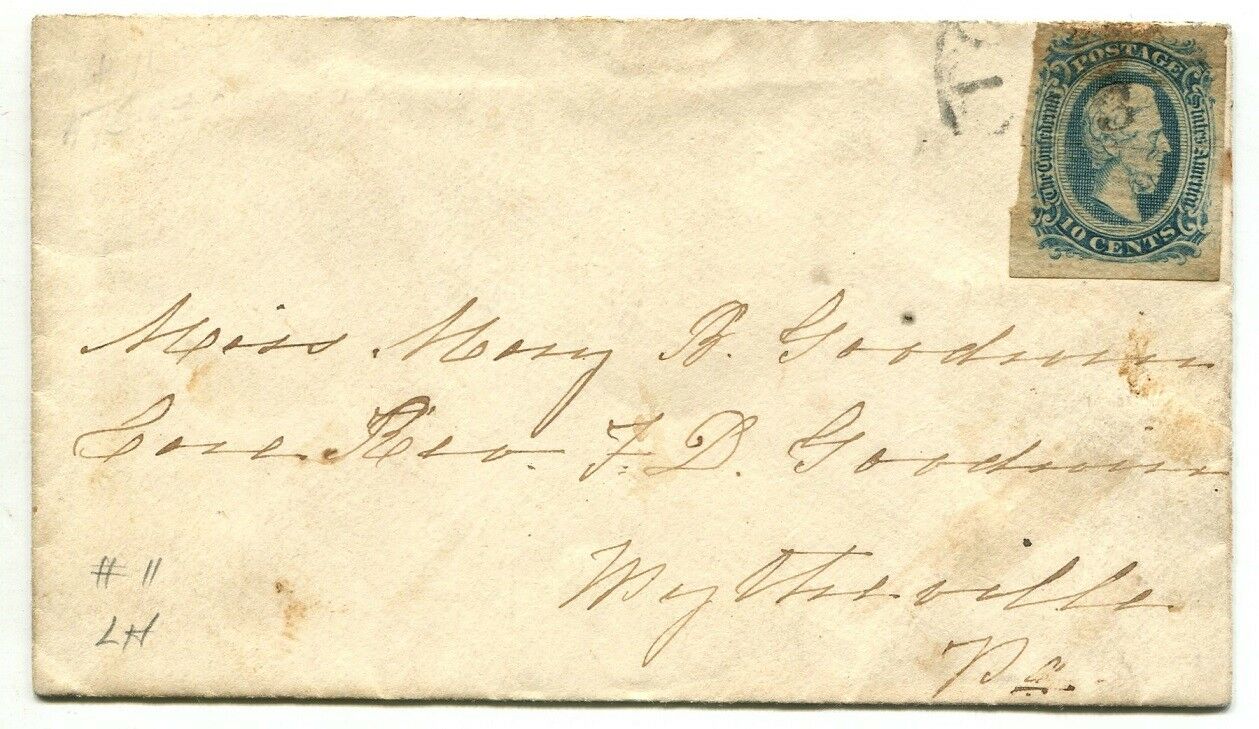 POSTAGE
The Confederate States of America
10 CENTS
Miss Mary B. Goodwin
Care Rev. F. D. Goodwin
Wytheville
Va.
# 11
LH